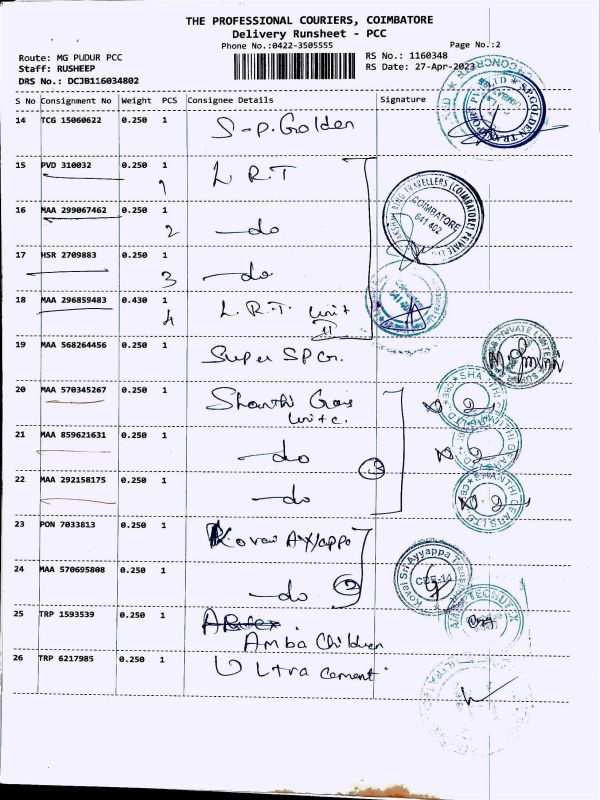 THE PROFESSIONAL COURIERS, COIMBATORE
Delivery Runsheet - PCC
Phone No.:0422-3505555
Page No.:2
Route: MG PUDUR PCC
RS No.: 1160348
Staff: RUSHEEP
RS Date: 27-Apr-2023
DRS No.: DCJB116034802
S No Consignment No Weight PCS Consignee Details Signature
14 TCG 15060622 0.250 1 S-p. Golden
15 PVD 310032 0.250 1 L R.T
1
16 MAA 299067462 0.250 1 -do
2
17 HSR 2709883 0.250 1 -do
3
18 MAA 296859483 0.430 1 L.R.T. unit
4 II
19 MAA 568264456 0.250 1 Super SP
20 MAA 570345267 0.250 1 Shanthi Gears
unit c.
21 MAA 859621631 0.250 1 -do
3
22 MAA 292158175 0.250 1 -do
23 PON 7033813 0.250 1 Kovai Ayyappa
24 MAA 570695808 0.250 1 -do
2
25 TRP 1593539 0.250 1
Amba Children
26 TRP 6217985 0.250 1 Ultra cement
S.P.GOLDEN TRANSPORT
TRAVELLERS (COIMBATORE) PRIVATE
COIMBATORE
641 402
PRIVATE LIMITED
SHANTHI GEARS LTD
Kovai Sri Ayyappa
CBE-14